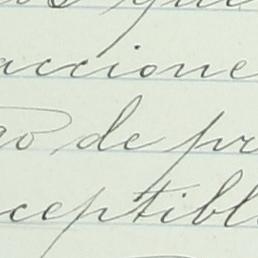 que
accione
go de pr
ceptibl